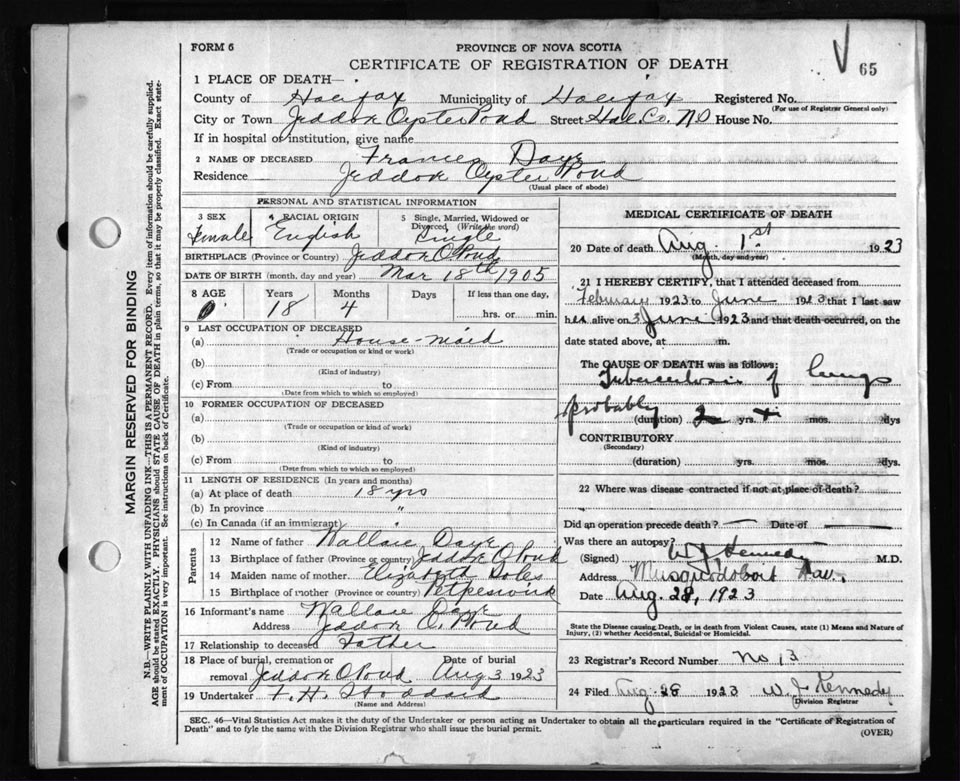 FORM 6
PROVINCE OF NOVA SCOTIA
CERTIFICATE OF REGISTRATION OF DEATH
65
1 PLACE OF DEATH—
County of Halifax Municipality of Halifax Registered No.
(For use of Registrar General only)
City or Town Jeddore Oyster Pond Street Hal. Co. NS House No.
If in hospital or institution, give name
2 NAME OF DECEASED Frances Daye
Residence Jeddore Oyster Pond
(Usual place of abode)
PERSONAL AND STATISTICAL INFORMATION
3 SEX Female
4 RACIAL ORIGIN English
5 Single, Married, Widowed or Divorced (Write the word) Single
BIRTHPLACE (Province or Country) Jeddore O Pond
DATE OF BIRTH (month, day and year) Mar 18th 1905
8 AGE Years Months Days If less than one day,
18 4 hrs. or min.
9 LAST OCCUPATION OF DECEASED
(a) House-maid
(Trade or occupation or kind or work)
(b)
(Kind of industry)
(c) From to
(Date from which to which so employed)
10 FORMER OCCUPATION OF DECEASED
(a)
(Trade or occupation or kind of work)
(b)
(Kind of industry)
(c) From to
(Date from which to which so employed)
11 LENGTH OF RESIDENCE (In years and months)
(a) At place of death 18 yrs
(b) In province "
(c) In Canada (if an immigrant) "
Parents
12 Name of father Wallace Daye
13 Birthplace of father (Province or country) Jeddore O Pond
14 Maiden name of mother Elizabeth
15 Birthplace of mother (Province or country) Petpeswick
16 Informant's name Wallace Daye
Address Jeddore O. Pond
17 Relationship to deceased Father
18 Place of burial, cremation or removal Jeddore O Pond Date of burial Aug 3 1923
19 Undertaker F. H. Stoddard
(Name and Address)
MEDICAL CERTIFICATE OF DEATH
20 Date of death Aug. 1st 1923
(Month, day and year)
21 I HEREBY CERTIFY, that I attended deceased from
February 1923 to June 1923 that I last saw
her alive on 3 June 1923 and that death occurred, on the
date stated above, at m.
The CAUSE OF DEATH was as follows:
Tuberculosis of lungs
probably (duration) 2 yrs. mos. dys
CONTRIBUTORY
(Secondary)
(duration) yrs. mos. dys.
22 Where was disease contracted if not at place of death?
Did an operation precede death? — Date of
Was there an autopsy?
(Signed) W J Kennedy M.D.
Address Musquodoboit Har.
Date Aug. 28, 1923
State the Disease causing Death, or in death from Violent Causes, state (1) Means and Nature of
Injury, (2) whether Accidental, Suicidal or Homicidal.
23 Registrar's Record Number No 13
24 Filed Aug. 28 1923 W. J. Kennedy
Division Registrar
SEC. 46—Vital Statistics Act makes it the duty of the Undertaker or person acting as Undertaker to obtain all the particulars required in the "Certificate of Registration of
Death" and to fyle the same with the Division Registrar who shall issue the burial permit.
(OVER)
MARGIN RESERVED FOR BINDING
N.B.—WRITE PLAINLY WITH UNFADING INK—THIS IS A PERMANENT RECORD. Every item of information should be carefully supplied.
AGE should be stated EXACTLY. PHYSICIANS should STATE CAUSE OF DEATH in plain terms, so that it may be properly classified. Exact state-
ment of OCCUPATION is very important. See instructions on back of Certificate.